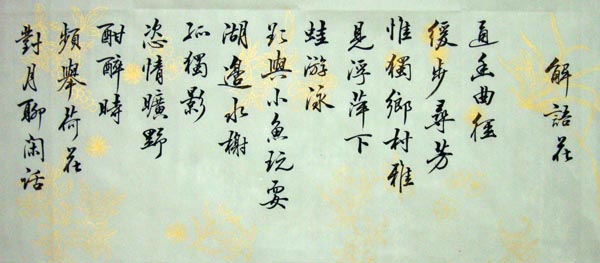 解語花
通幽曲徑
緩步尋芳
惟獨鄉村雅
見浮萍下
蛙游泳
與小魚玩耍
湖邊水榭
孤獨影
恣情曠野
酣醉時
頻舉荷花
對月聊閑話